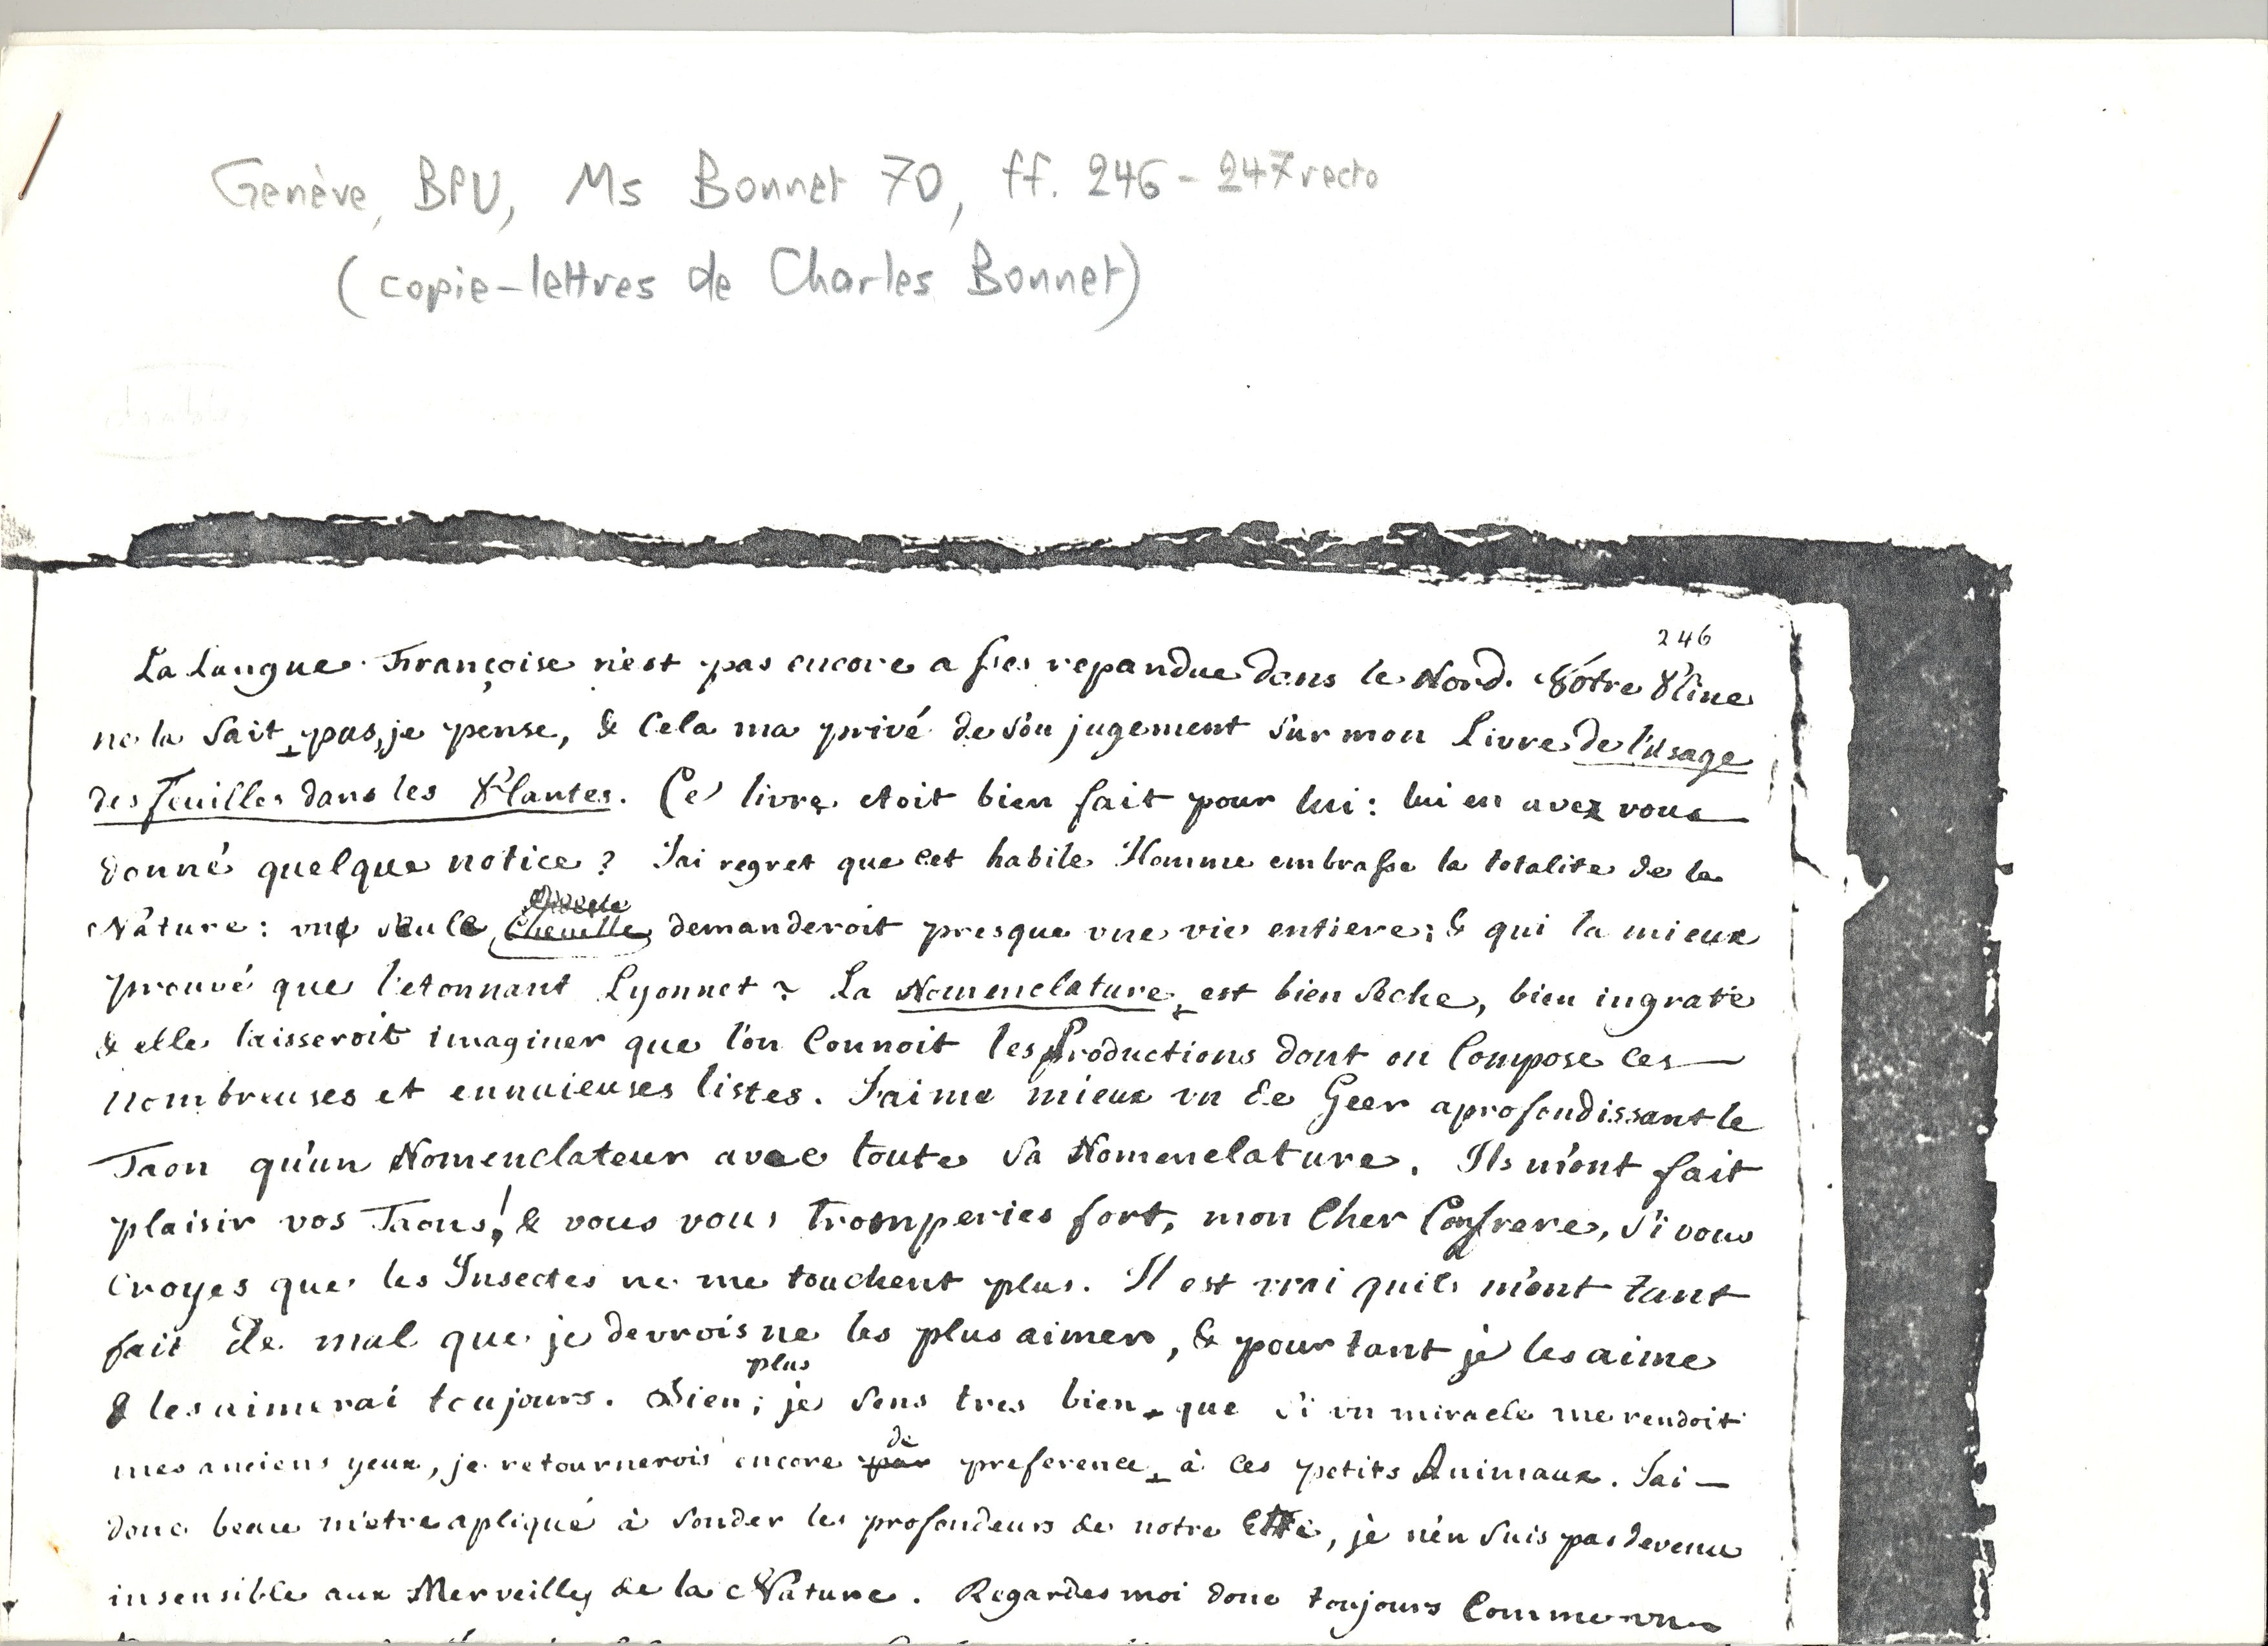 Genève, BPU, Ms Bonnet 70, ff. 246-247recto
(copie-lettres de Charles Bonnet)
246
La Langue Françoise n'est pas encore assés repandue dans le Nord. Vôtre Pline
ne la sait pas, je pense, & cela ma privé de son jugement sur mon Livre de l'Usage
des Feuilles dans les Plantes. Ce livre etoit bien fait pour lui: lui en avez vous
donné quelque notice? J'ai regret que cet habile Homme embrasse la totalite de la
Nature: une seule Chenille demanderoit presque une vie entiere; & qui la mieux
prouvé que l'etonnant Lyonnet? La Nomenclature est bien seche, bien ingrate
& elle laisseroit imaginer que l'on connoit les Productions dont on compose ces
nombreuses et ennuieuses listes. J'aime mieux un de Geer aprofondissant le
Taon qu'un Nomenclateur avec toute sa Nomenclature. Ils m'ont fait
plaisir vos Taons! & vous vous tromperies fort, mon cher Confrere, si vous
croyes que les Insectes ne me touchent plus. Il est vrai quils m'ont tant
fait de mal que je devrois ne les plus aimer, & pourtant je les aime
& les aimerai toujours. Bien plus; je sens tres bien que si un miracle me rendoit
mes anciens yeux, je retournerois encore par de preference à ces petits Animaux. J'ai
donc beau m'etre apliqué à sonder les profondeurs de notre Etre, je n'en suis pas devenu
insensible aux Merveilles de la Nature. Regardes moi donc toujours comme un